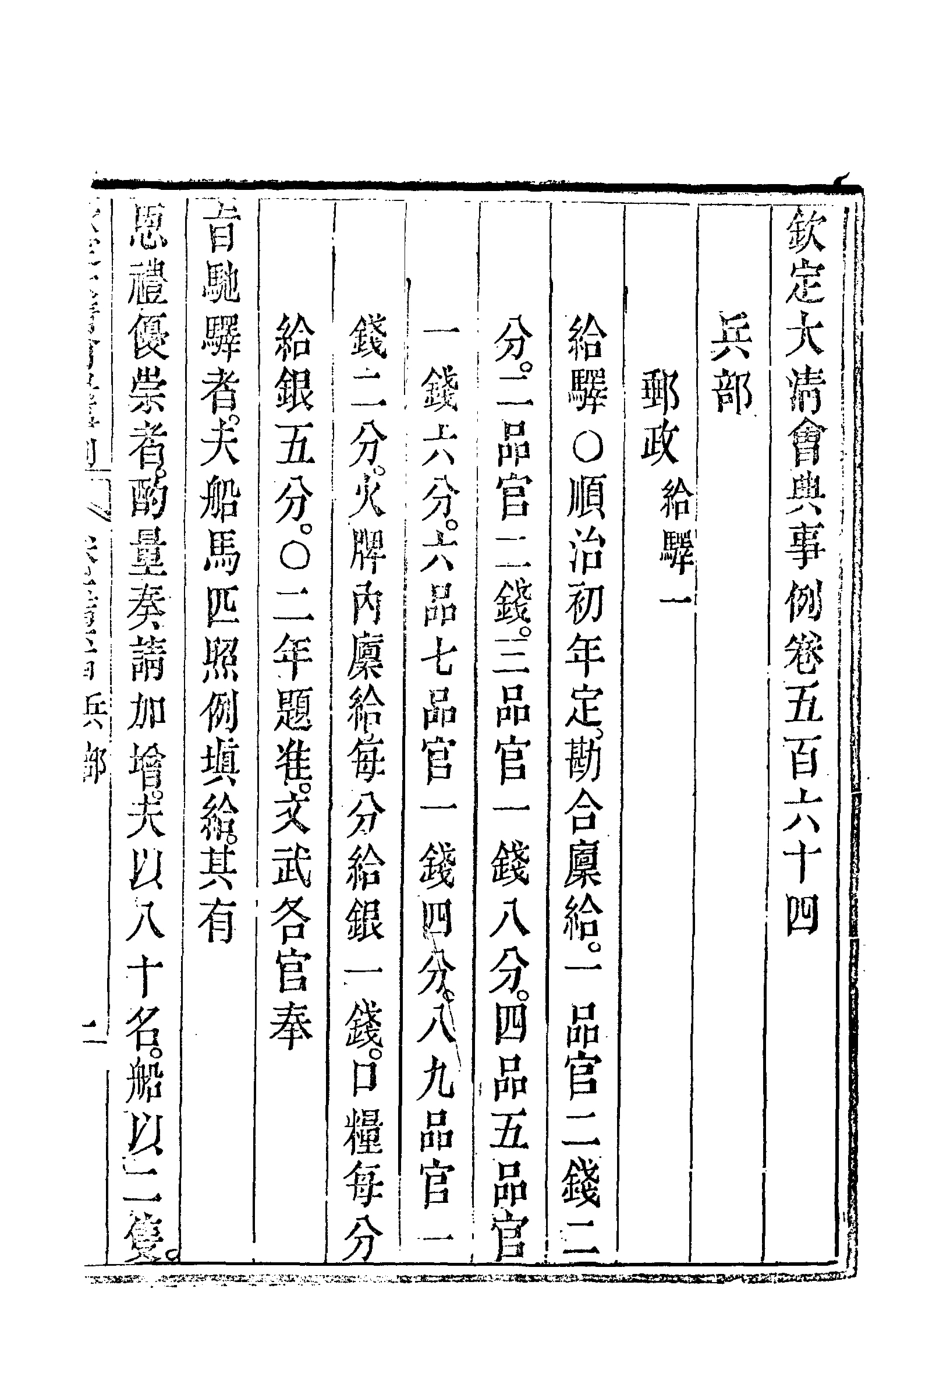 欽定大淸會典事例卷五百六十四
兵部
郵政 給驛一
給驛○順治初年定。勘合廩給。一品官二錢二
分。二品官二錢。三品官一錢八分。四品五品官
一錢六分。六品七品官一錢四分。八九品官一
錢二分。火牌內廩給每分給銀一錢。口糧每分
給銀五分。○二年題准。文武各官奉
旨馳驛者。夫船馬匹照例塡給。其有
恩禮優崇者。酌量奏請加增。夫以八十名。船以二隻。
兵部 一